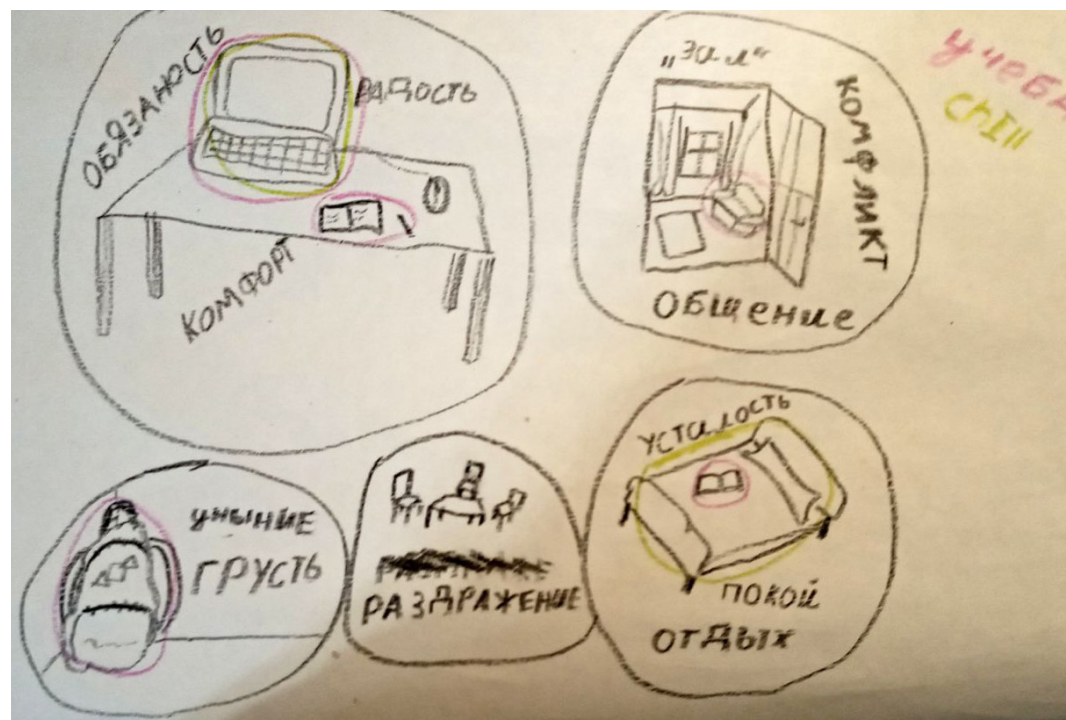 ОБЯЗАНОСТЬ
РАДОСТЬ
КОМФОРТ
„Зал“
КОМФЛИКТ
ОБЩЕНИЕ
УЧЕБА
ChIll
УНЫНИЕ
ГРУСТЬ
РАЗДРАЖЕНИЕ
УСТАЛОСТЬ
ПОКОЙ
ОТДЫХ